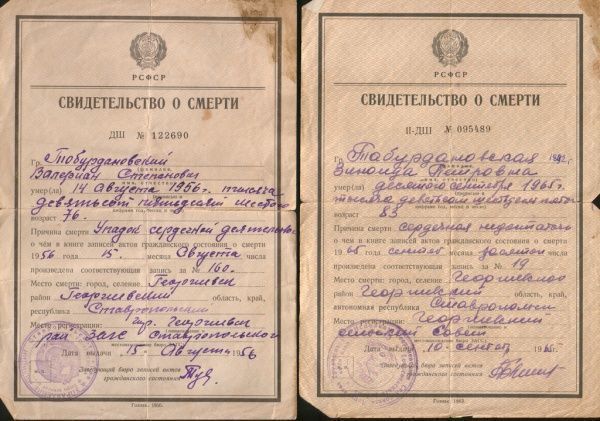 РСФСР
СВИДЕТЕЛЬСТВО О СМЕРТИ
ДШ № 122690
Гр. Табурдановский
Валериан Степанович
умер(ла) 14 Августа 1956г. тысяча
девятьсот пятьдесят шестого
возраст 76.
Причина смерти Упадок сердечной деятельнос
о чем в книге записей актов гражданского состояния о смерти
1956 года 15. месяца Августа числа
произведена соответствующая запись за № 160.
Место смерти: город, селение Георгиевск
район Георгиевский область, край,
республика Ставропольский
Место регистрации: гор. Георгиевск
рай ЗАГС Ставропольского
Дата выдачи 15 Августа 1956
Заведующий бюро записей актов
гражданского состояния
Гознак. 1950.
РСФСР
СВИДЕТЕЛЬСТВО О СМЕРТИ
II-ДШ № 095489
Гр. Табурдановская
Зинаида Петровна
умер(ла) десятого сентября 1965г.
тысяча девятьсот шестьдесят пято
возраст 83
Причина смерти сердечная недостаточ
о чем в книге записей актов гражданского состояния о смерти
1965 сентябр десятого
произведена соответствующая запись за № 19
Место смерти: город, селение Георгиевское
район Георгиевский
область, край,
автономная республика Ставрополь
Место регистрации: Георгиевский
сельский Совет
Дата выдачи 10 сентябр 1965г.
Заведующий бюро записей актов
гражданского состояния